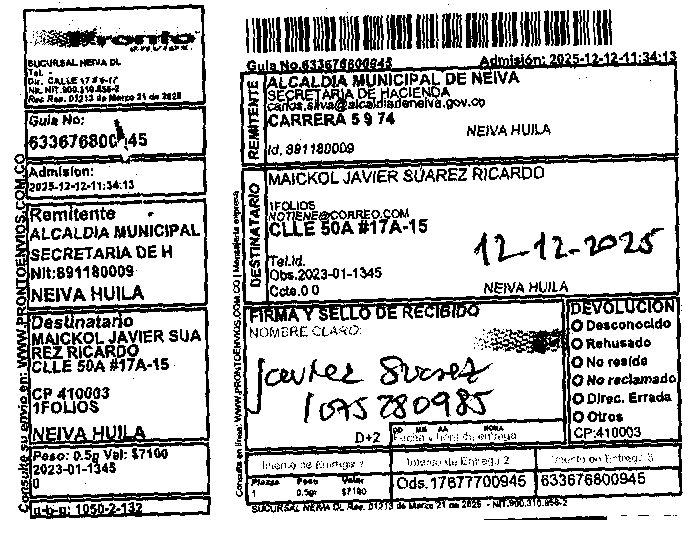 Pronto
envios
SUCURSAL NEIVA DL
Tel. -
Dir. CALLE 17 # 6-17
Nit. NIT.900.310.856-2
Rec Res. 01213 de Marzo 21 de 2025
Guia No:
633676800945
Admision:
2025-12-12-11:34:13
Remitente
ALCALDIA MUNICIPAL
SECRETARIA DE H
Nit:891180009
NEIVA HUILA
Destinatario
MAICKOL JAVIER SUA
REZ RICARDO
CLLE 50A #17A-15
CP 410003
1FOLIOS
NEIVA HUILA
Peso: 0.5g Vel: $7100
2023-01-1345
0
g-b-g: 1050-2-132
Consulte su envio en: WWW.PRONTOENVIOS.COM.CO
Guia No.633676800945 Admisión: 2025-12-12-11:34:13
REMITENTE
ALCALDIA MUNICIPAL DE NEIVA
SECRETARIA DE HACIENDA
carlos.silva@alcaldiadeneiva.gov.co
CARRERA 5 9 74
NEIVA HUILA
Id. 891180009
DESTINATARIO
MAICKOL JAVIER SUAREZ RICARDO
1FOLIOS
NOTIENE@CORREO.COM
CLLE 50A #17A-15
12-12-2025
Tel.Id.
Obs.2023-01-1345
Ccte.0 0
NEIVA HUILA
FIRMA Y SELLO DE RECIBIDO
NOMBRE CLARO:
Javier Suarez
1075280985
D+2
DD MM AA HORA
Fecha y hora de entrega
DEVOLUCION
Desconocido
Rehusado
No reside
No reclamado
Direc. Errada
Otros
CP:410003
Intento de Entrega 1
Intento de Entrega 2
Intento de Entrega 3
Piezas Peso Valor
1 0.5gr $7100
Ods.17677700945
633676800945
SUCURSAL NEIVA DL Res. 01213 de Marzo 21 de 2025 - NIT.900.310.856-2
Consulte en linea: WWW.PRONTOENVIOS.COM.CO | Mensajeria expresa